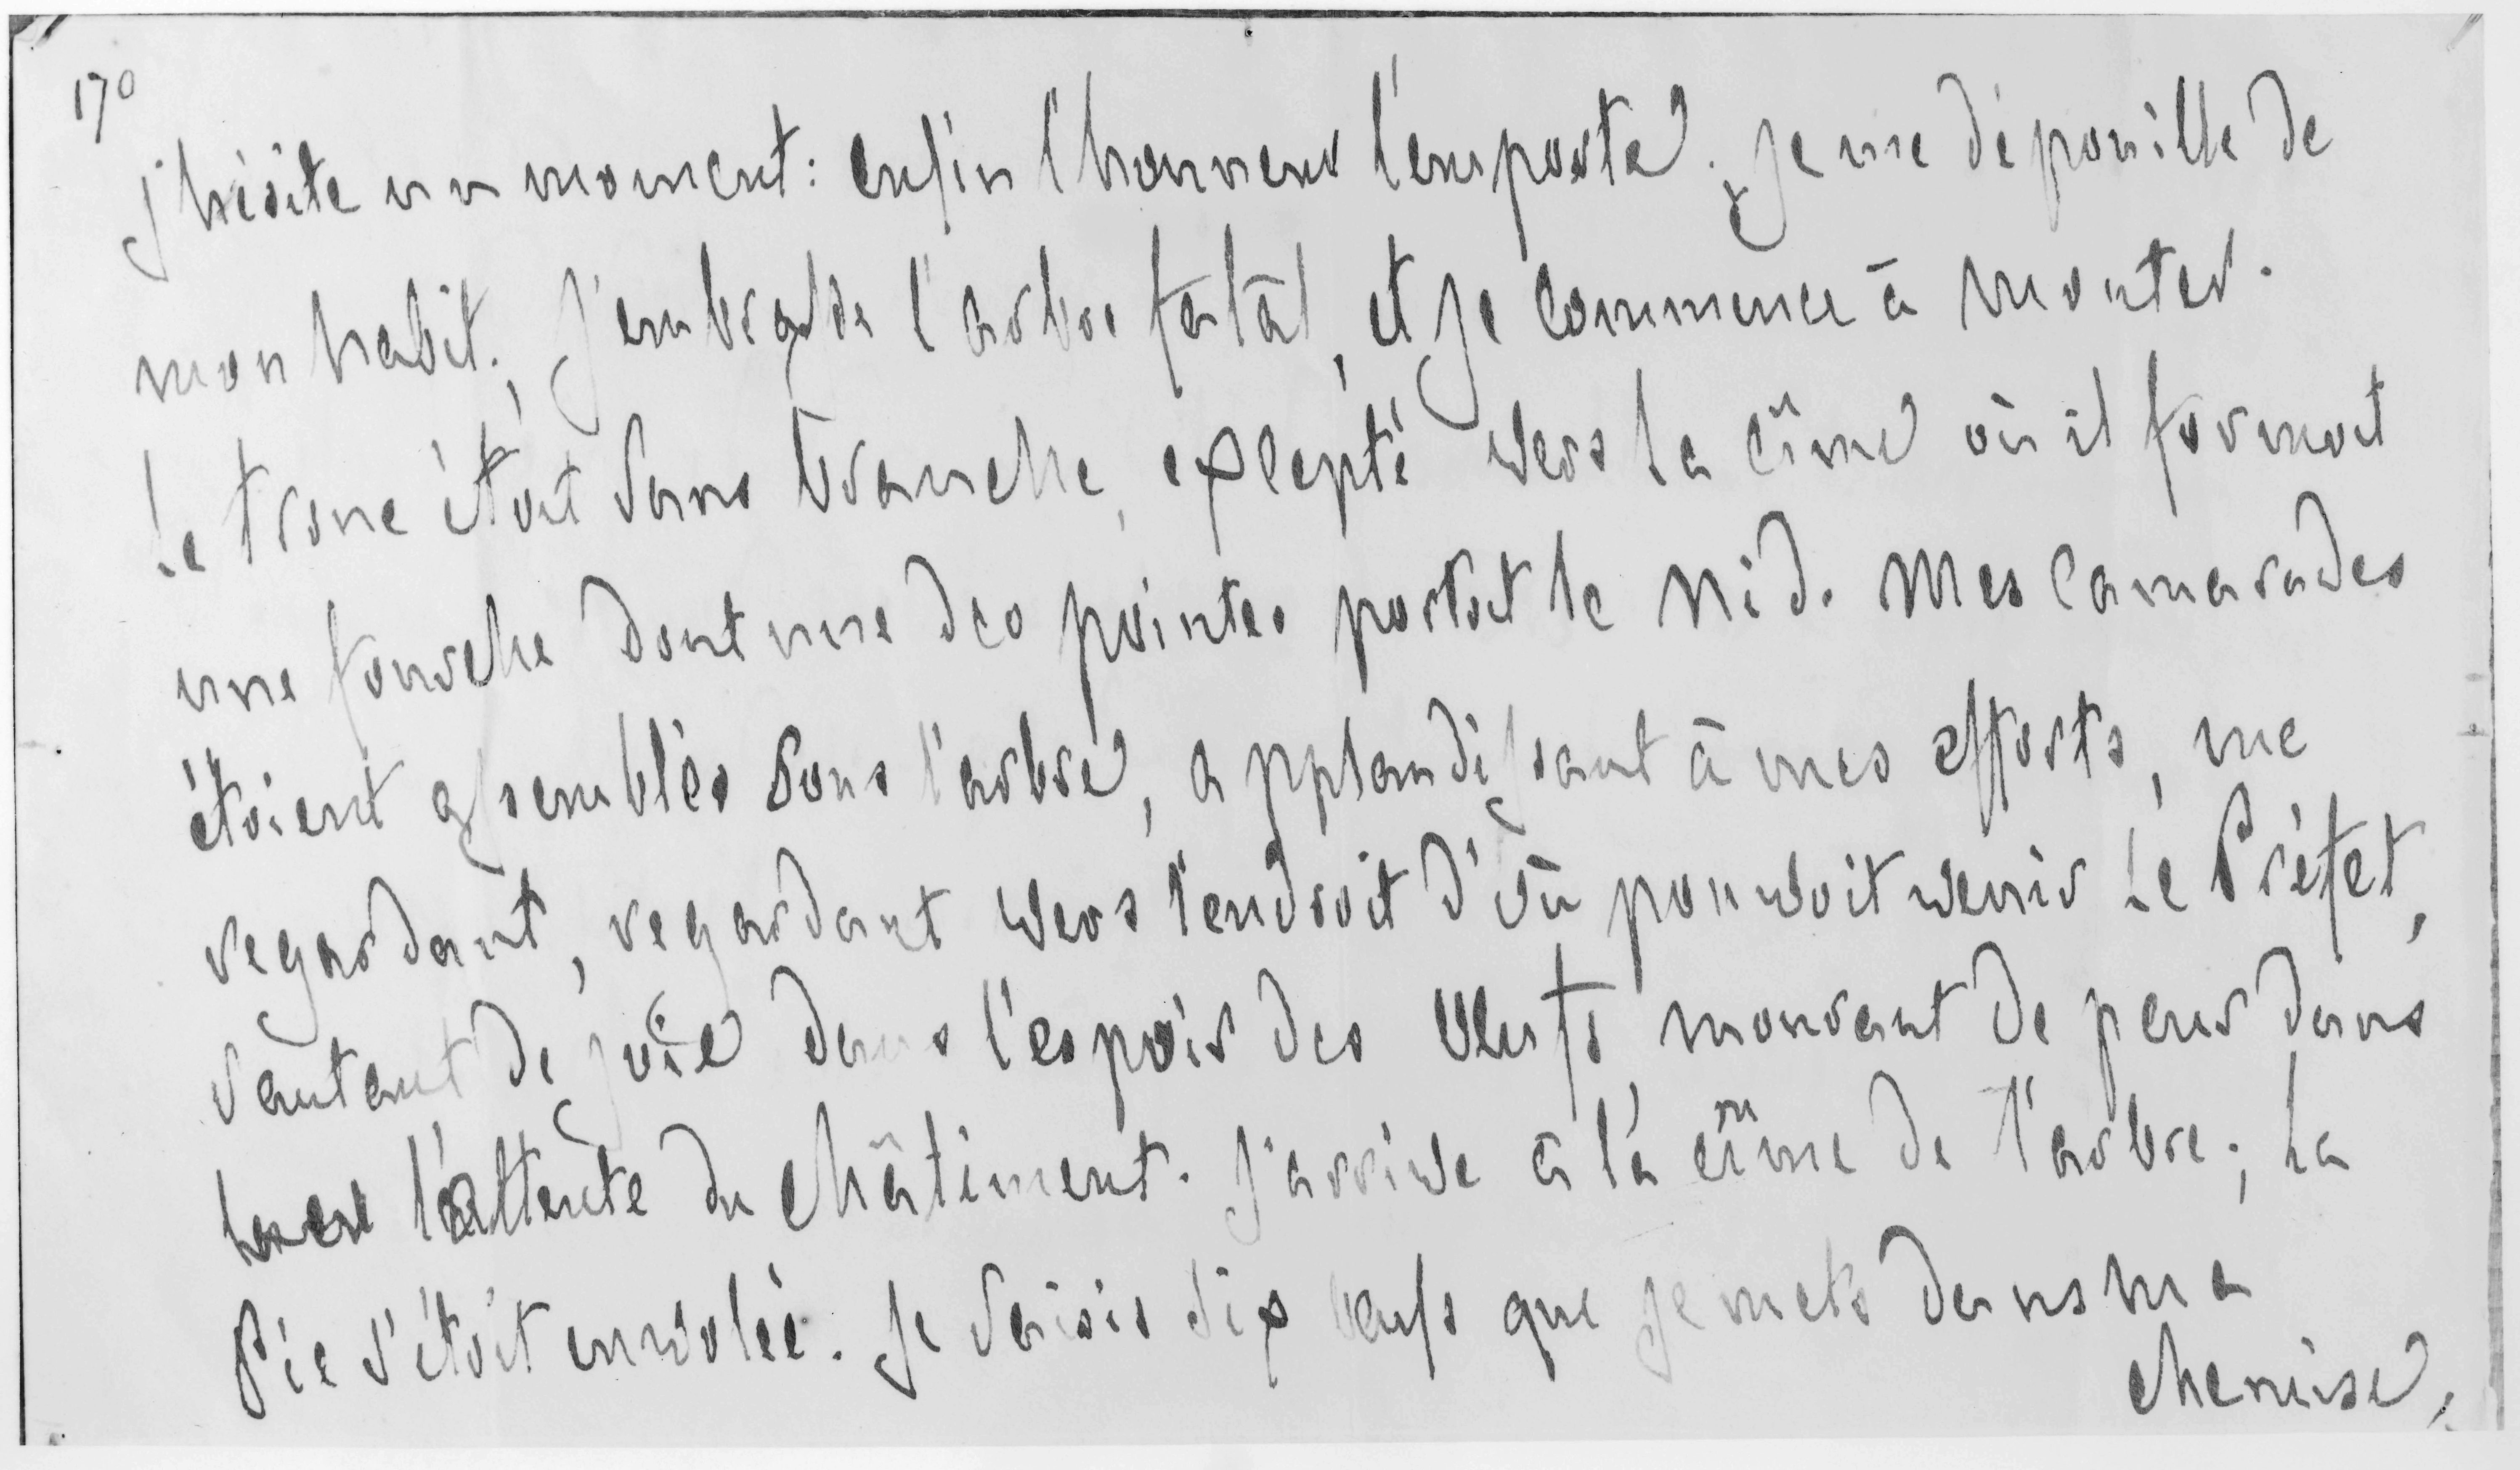 170
j'hésite un moment: enfin l'honneur l'emporte; je me dépouille de
mon habit; j'embrasse l'arbre fatal, et je commence à monter.
Le tronc étoit sans branche, excepté vers la cîme où il formoit
une fourche dont une des pointes portoit le nid. Mes camarades
étoient assemblés sous l'arbre, applaudissant à mes efforts, me
regardant, regardant vers l'endroit d'où pouvoit venir le Préfet,
sautant de joie dans l'espoir des oeufs, mourant de peur dans
l'attente du châtiment. J'arrive à la cîme de l'arbre; la
Pie s'étoit envolée. Je saisis dix oeufs que je mets dans ma
chemise,